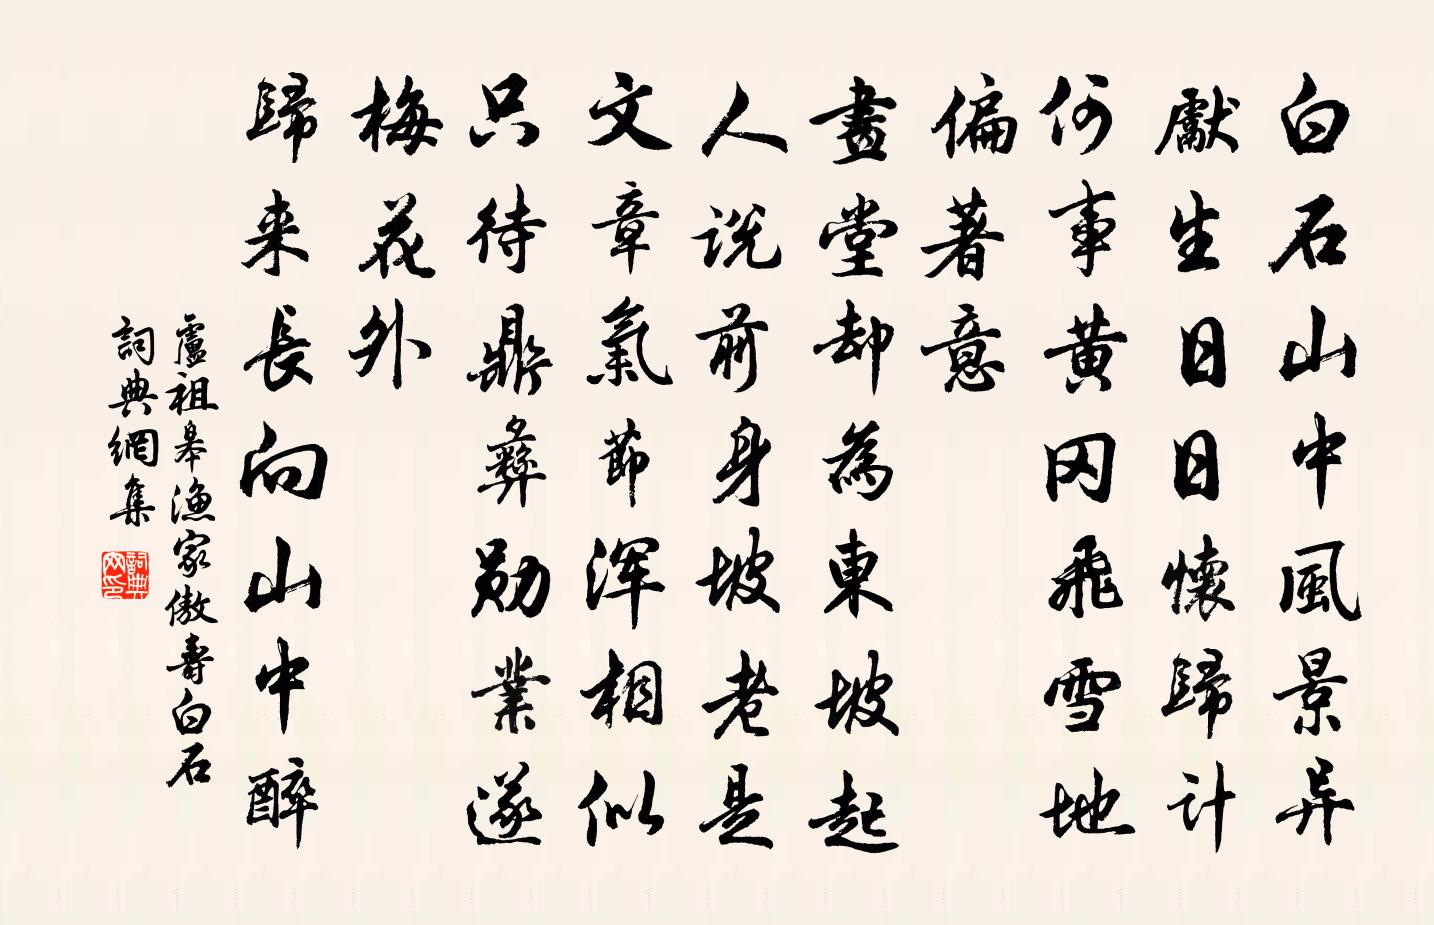 白石山中風景异
獻生日日懷歸計
何事黄冈飛雪地
偏著意
畫堂却為東坡起
人说前身坡老是
文章氣節浑相似
只待鼎彝勋業遂
梅花外
歸来長向山中醉
盧祖皋漁家傲壽白石
詞典網集
詞典
网印